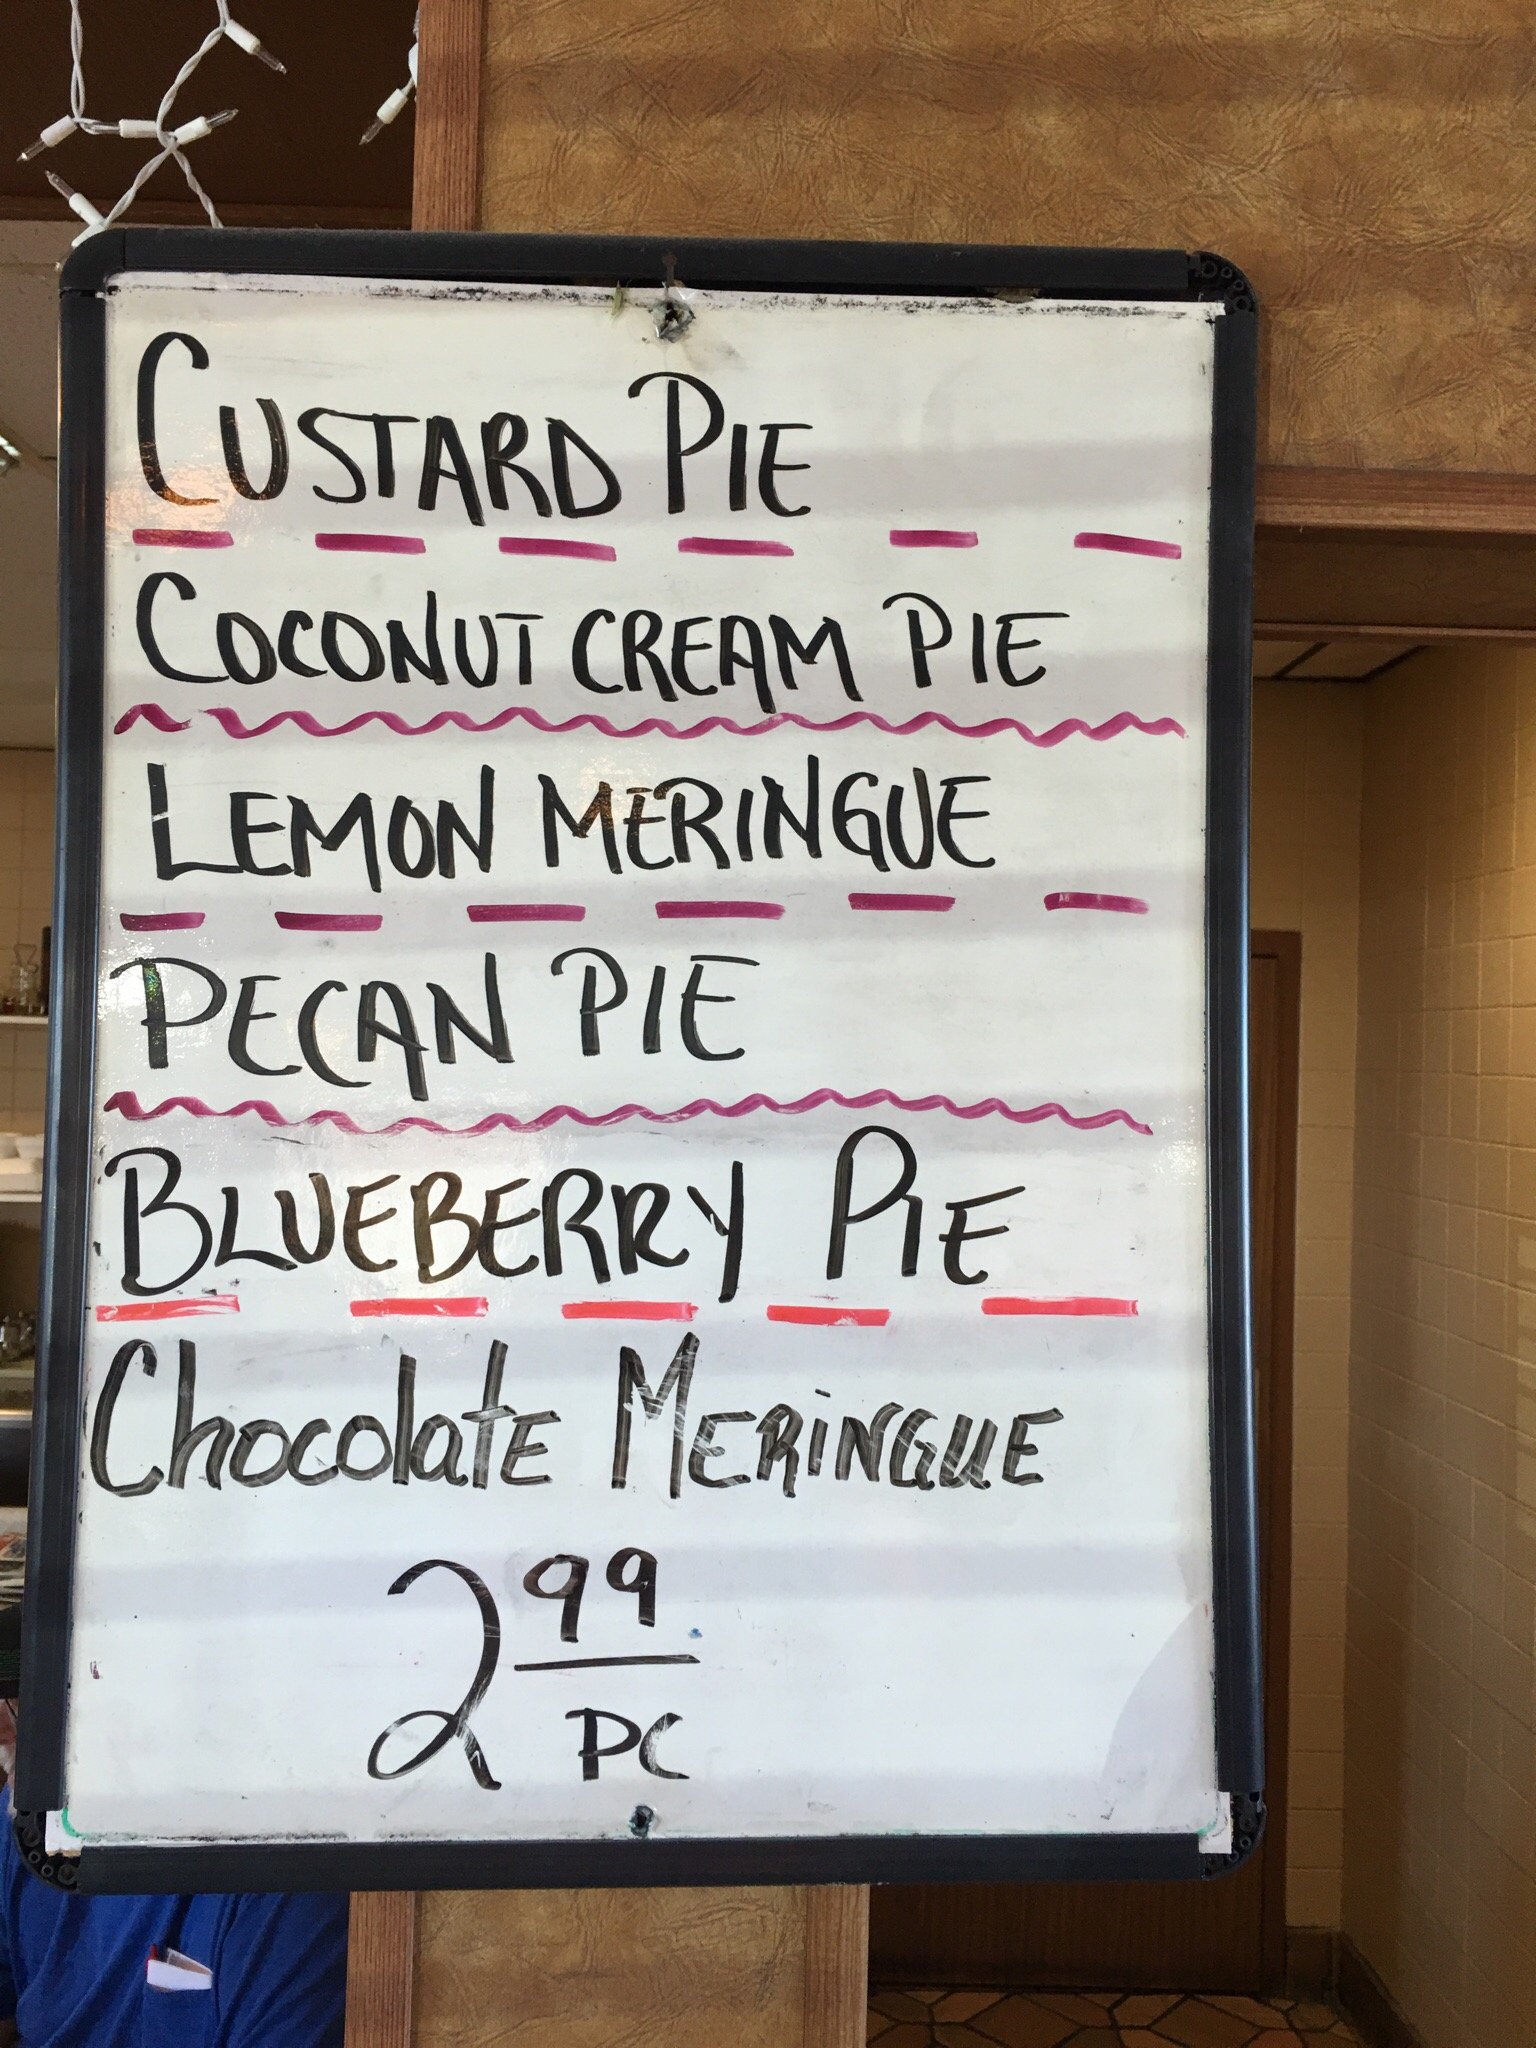 CUSTARD PIE
COCONUT CREAM PIE
LEMON MERINGUE
PECAN PIE
BLUEBERRY PIE
Chocolate MERiNGUE
2 99
PC